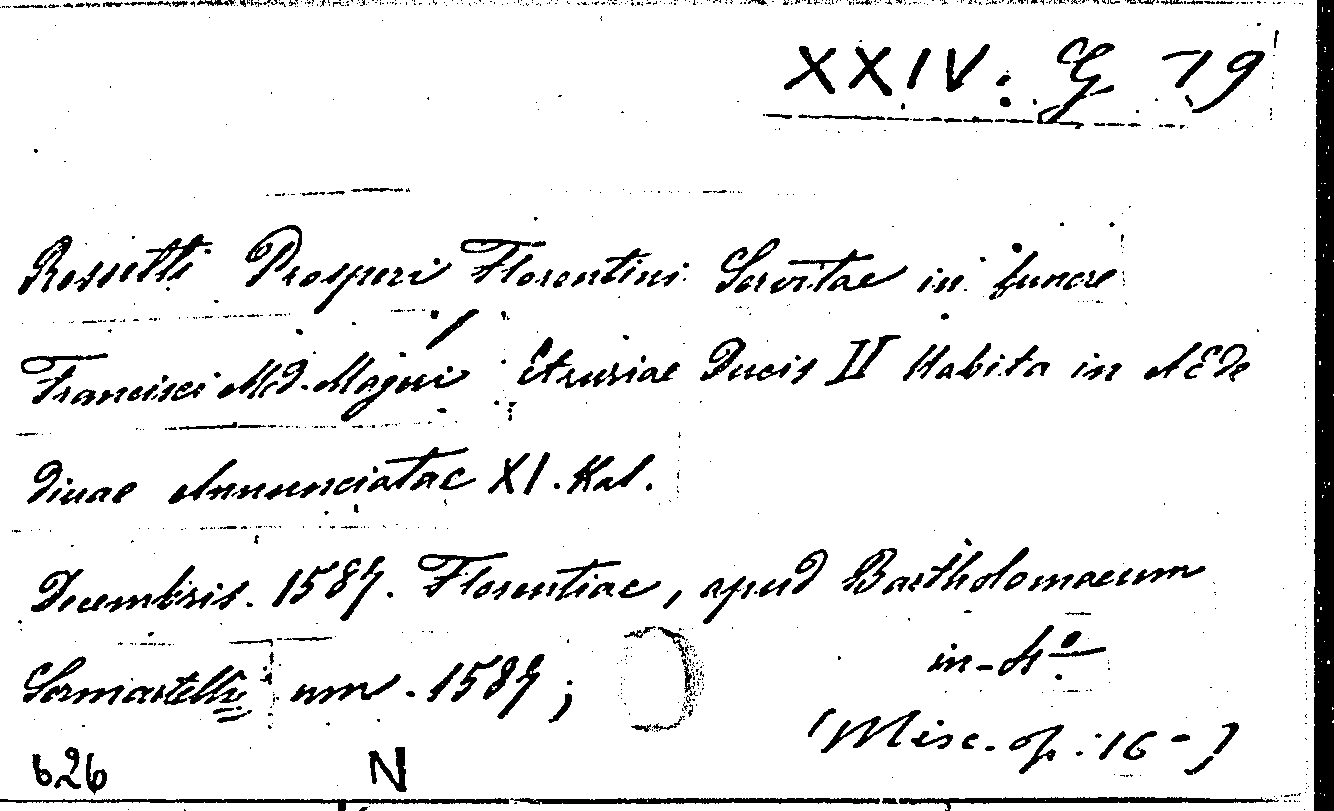 XXIV. G 79
Rossetti Prosperi Florentini Servitae in funere
Francisci Med. Magni Etruriae Ducis II Habita in AEde
Divae Annunciatae XI. Kal.
Decembris. 1587. Florentiae, apud Bartholomaeum
Sermartelli um. 1587;
in-4º
(Misc. op. 16-)
626 N